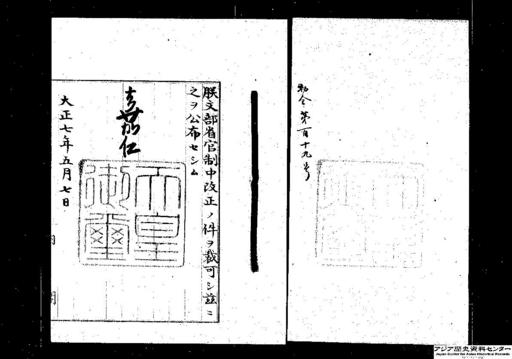 勅令第百十九号
朕文部省官制中改正ノ件ヲ裁可シ玆ニ
之ヲ公布セシム
嘉仁
天皇
御璽
大正七年五月七日
アジア歴史資料センター
Japan Center for Asian Historical Records